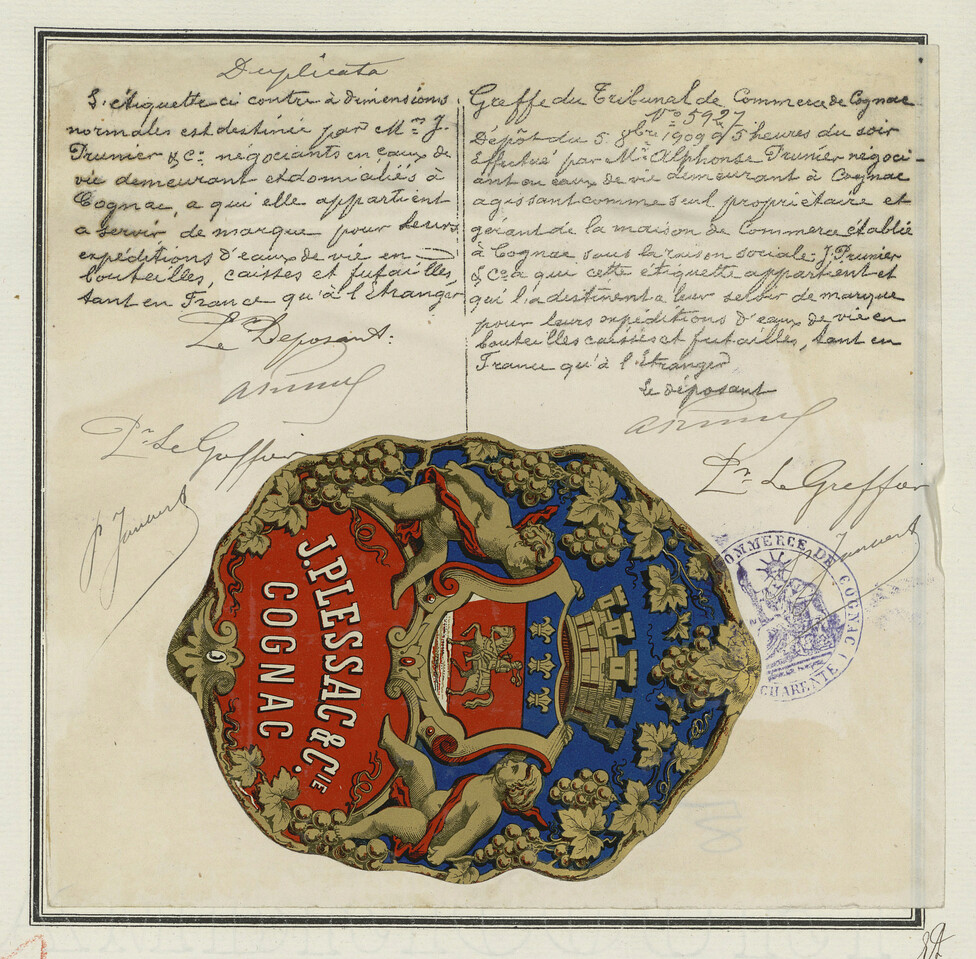 Duplicata
L'étiquette ci contre à dimensions
normales est destinée par Mrs J.
Prunier & Co négociants en eaux de
vie demeurant et domiciliés à
Cognac, a qui elle appartient
a servir de marque pour leurs
expéditions d'eaux de vie en
bouteilles, caisses et futailles,
tant en France qu'à l'Etranger
Le Déposant.
APrunier
Pr Le Greffier
Janvert
Greffe du Tribunal de Commerce de Cognac
No 5927
Dépôt du 5 8bre 1909 à 5 heures du soir
Effectué par Mr Alphonse Prunier négoci-
ant en eaux de vie demeurant à Cognac
agissant comme seul propriétaire et
gérant de la maison de Commerce établie
à Cognac sous la raison sociale J. Prunier
& Co a qui cette étiquette appartient et
qui l'a destinent a leur servir de marque
pour leurs expéditions d'eaux de vie en
bouteilles caisses et futailles, tant en
France qu'à l'Etranger
Le déposant
APrunier
Pr Le Greffier
Janvert
J. PLESSAC & CIE.
COGNAC
COMMERCE DE COGNAC
CHARENTE